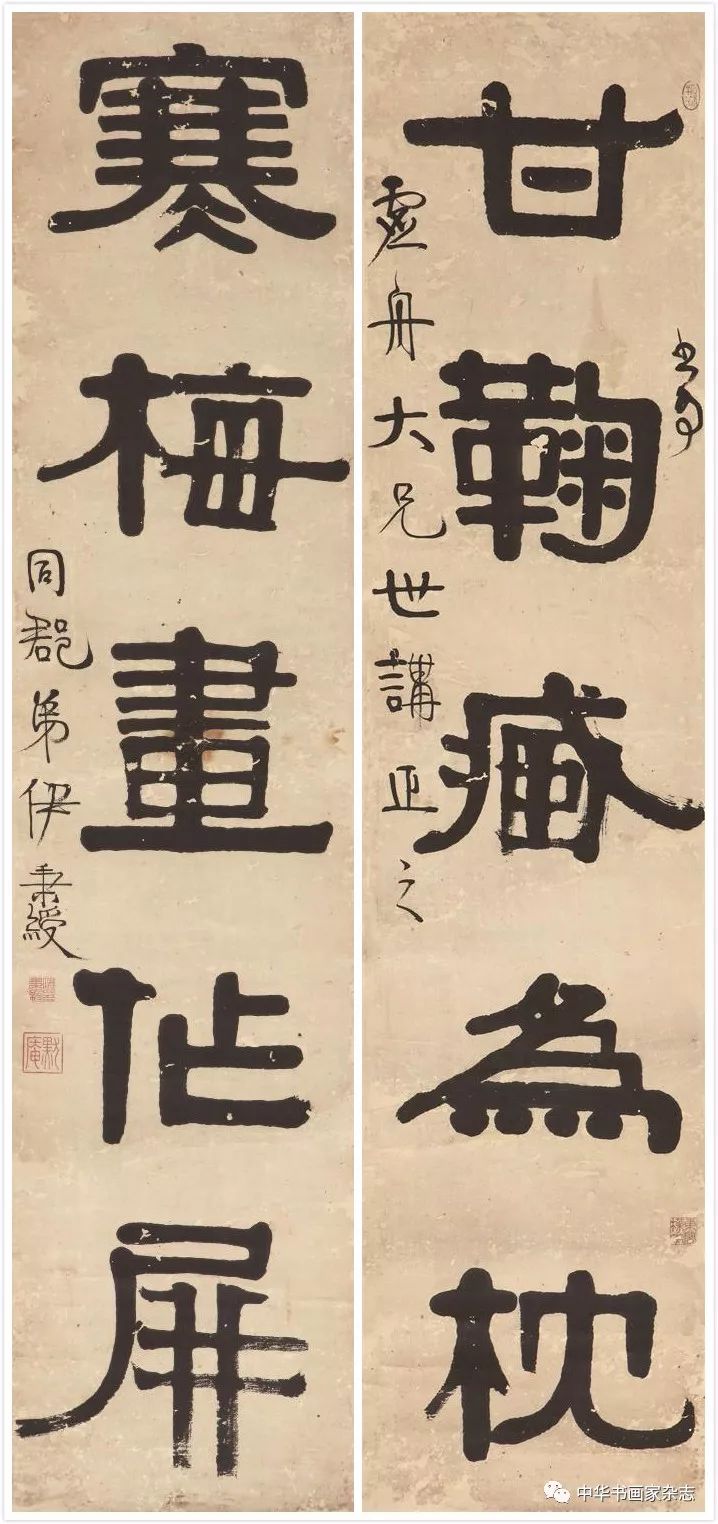 甘鞠臧為枕
虛舟大兄世講正之
寒梅畫作屏
同郡弟伊秉綬
默庵
中华书画家杂志